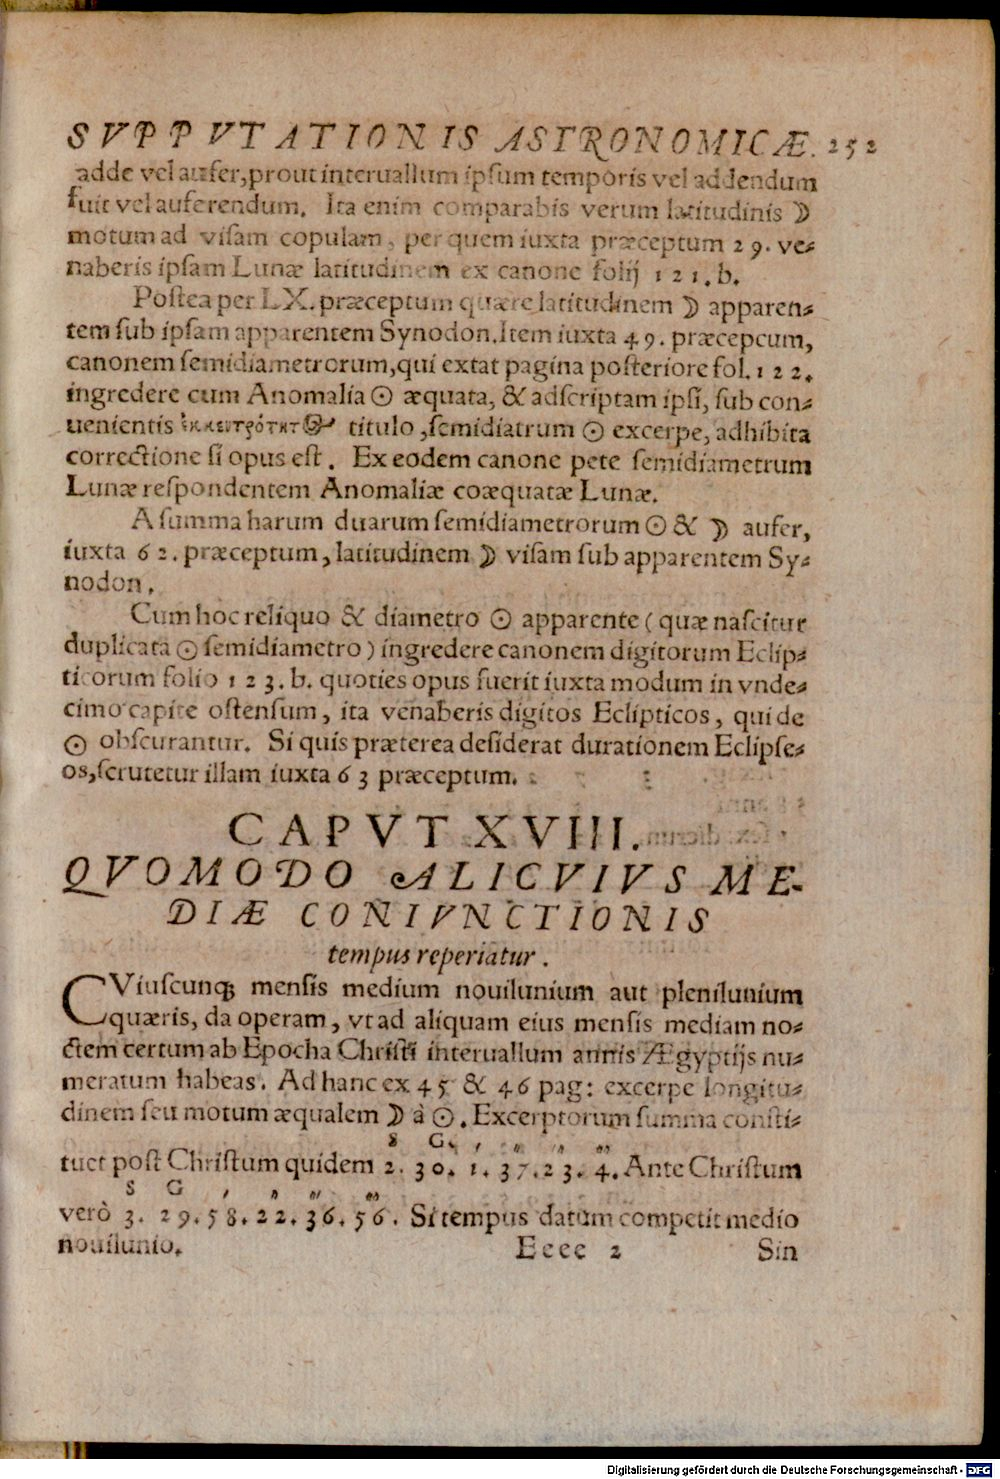 SVPPVTATIONIS ASTRONOMICÆ. 252
adde vel aufer, prout interuallum ipſum temporis vel addendum
fuit vel auferendum. Ita enim comparabis verum latitudinis ☽
motum ad viſam copulam, per quem iuxta præceptum 29. ve⸗
naberis ipſam Lunæ latitudinem ex canone folij 121. b.
Poſtea per LX. præceptum quære latitudinem ☽ apparen⸗
tem ſub ipſam apparentem Synodon. Item iuxta 49. præcepcum,
canonem ſemidiametrorum, qui extat pagina poſteriore fol. 122.
ingredere cum Anomalia ☉ æquata, & adſcriptam ipſi, ſub con⸗
uenientis titulo, ſemidiatrum ☉ excerpe, adhibita
correctione ſi opus eſt. Ex eodem canone pete ſemidiametrum
Lunæ reſpondentem Anomaliæ coæquatæ Lunæ.
A ſumma harum duarum ſemidiametrorum ☉ & ☽ aufer,
iuxta 62. præceptum, latitudinem ☽ viſam ſub apparentem Sy⸗
nodon.
Cum hoc reliquo & diametro ☉ apparente ( quæ naſcitur
duplicata ☉ ſemidiametro ) ingredere canonem digitorum Eclip⸗
ticorum folio 123. b. quoties opus fuerit iuxta modum in vnde⸗
cimo capite oſtenſum, ita venaberis digitos Eclipticos, qui de
☉ obſcurantur. Si quis præterea deſiderat durationem Eclipſe⸗
os, ſcrutetur illam iuxta 63 præceptum.
CAPVT XVIII.
QVOMODO ALICVIVS ME-
DIÆ CONIVNCTIONIS
tempus reperiatur.
CViuſcunq; menſis medium nouilunium aut plenilunium
quæris, da operam, vt ad aliquam eius menſis mediam no⸗
ctem certum ab Epocha Chriſti interuallum annis Ægyptijs nu⸗
meratum habeas. Ad hanc ex 45 & 46 pag: excerpe longitu⸗
dinem ſeu motum æqualem ☽ à ☉. Excerptorum ſumma conſti⸗
S G. ′ ″ ‴ ⁗
tuet poſt Chriſtum quidem 2. 30. 1. 37. 23. 4. Ante Chriſtum
S G ′ ″ ‴ ⁗
verò 3. 29. 58. 22. 36. 56. Si tempus datum competit medio
nouilunio. Eeee 2 Sin
Digitalisierung gefördert durch die Deutsche Forschungsgemeinschaft - DFG